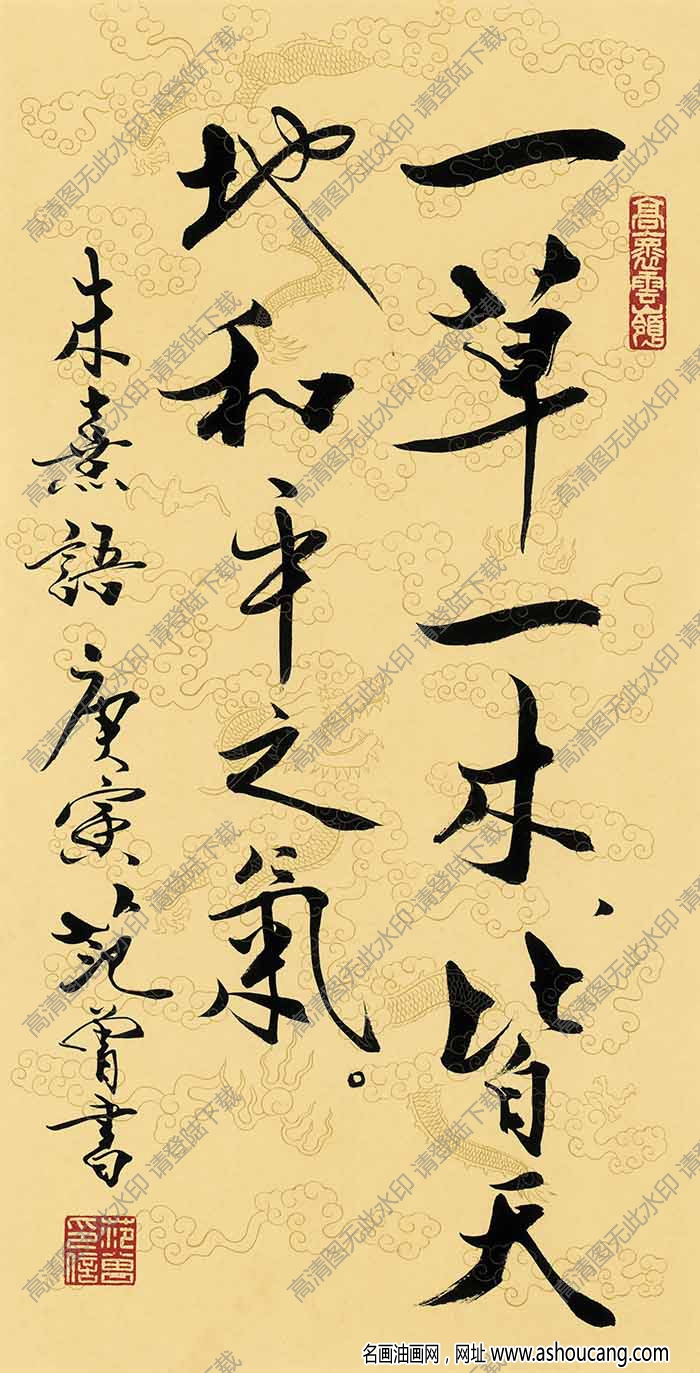 一草一木、皆天
地和平之氣。
朱熹語 庚寅 范曾書
范曾印信
高清图无此水印 请登陆下载
名画油画网，网址 www.ashoucang.com